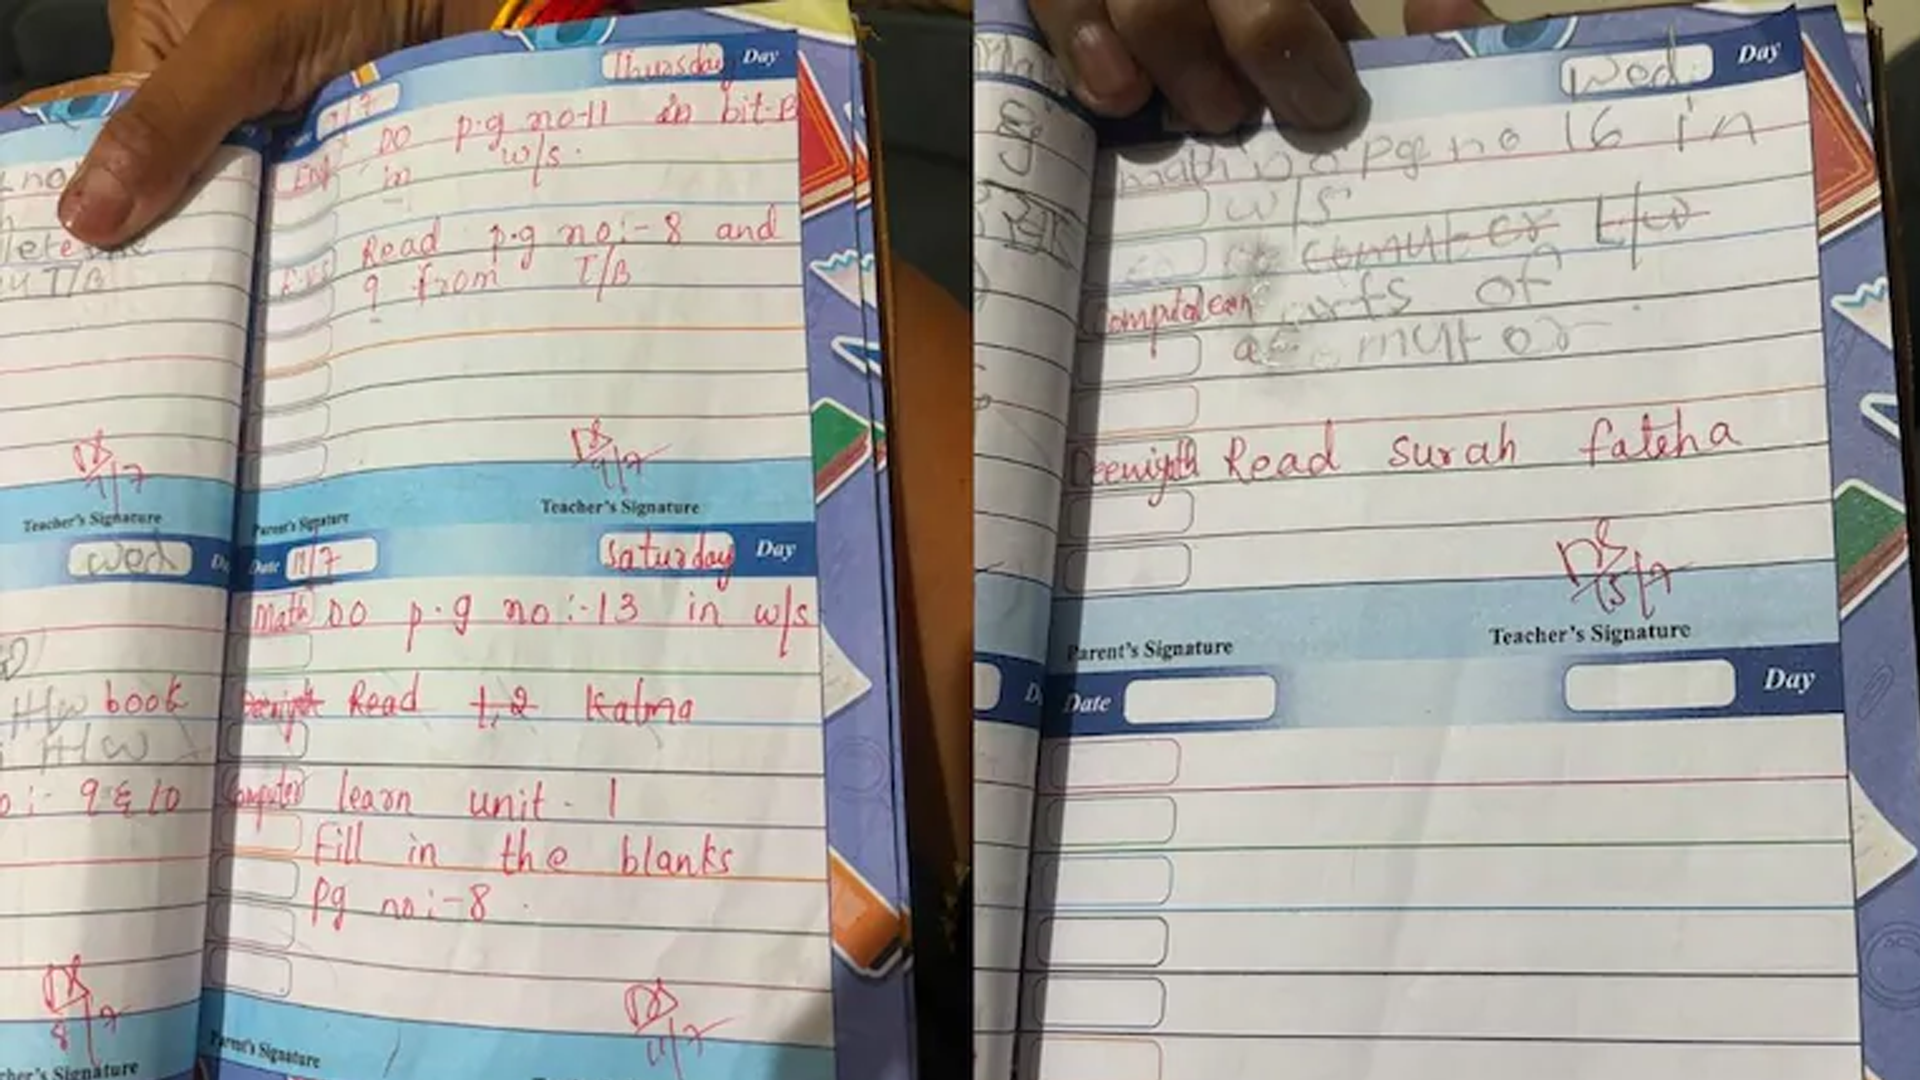 Thursday Day
9/7
Eng Do p.g no-11 in bit-B
in w/s.
E.V.S Read p.g no:- 8 and
9 from T/B
9/7
Teacher's Signature
Parent's Signature
Date 11/7 Saturday Day
Math Do p.g no:-13 in w/s
Read 1,2 Kalma
Computer learn unit - 1
Fill in the blanks
Pg no:-8
11/7
Parent's Signature
T/B
7
Teacher's Signature
Wed
H/W book
H/W
9 & 10
8/7
Signature
Wed. Day
math pg no 16 in
w/s
L/W
learn parts of
a
Deeniyath Read surah fateha
15/7
Parent's Signature
Teacher's Signature
Date Day